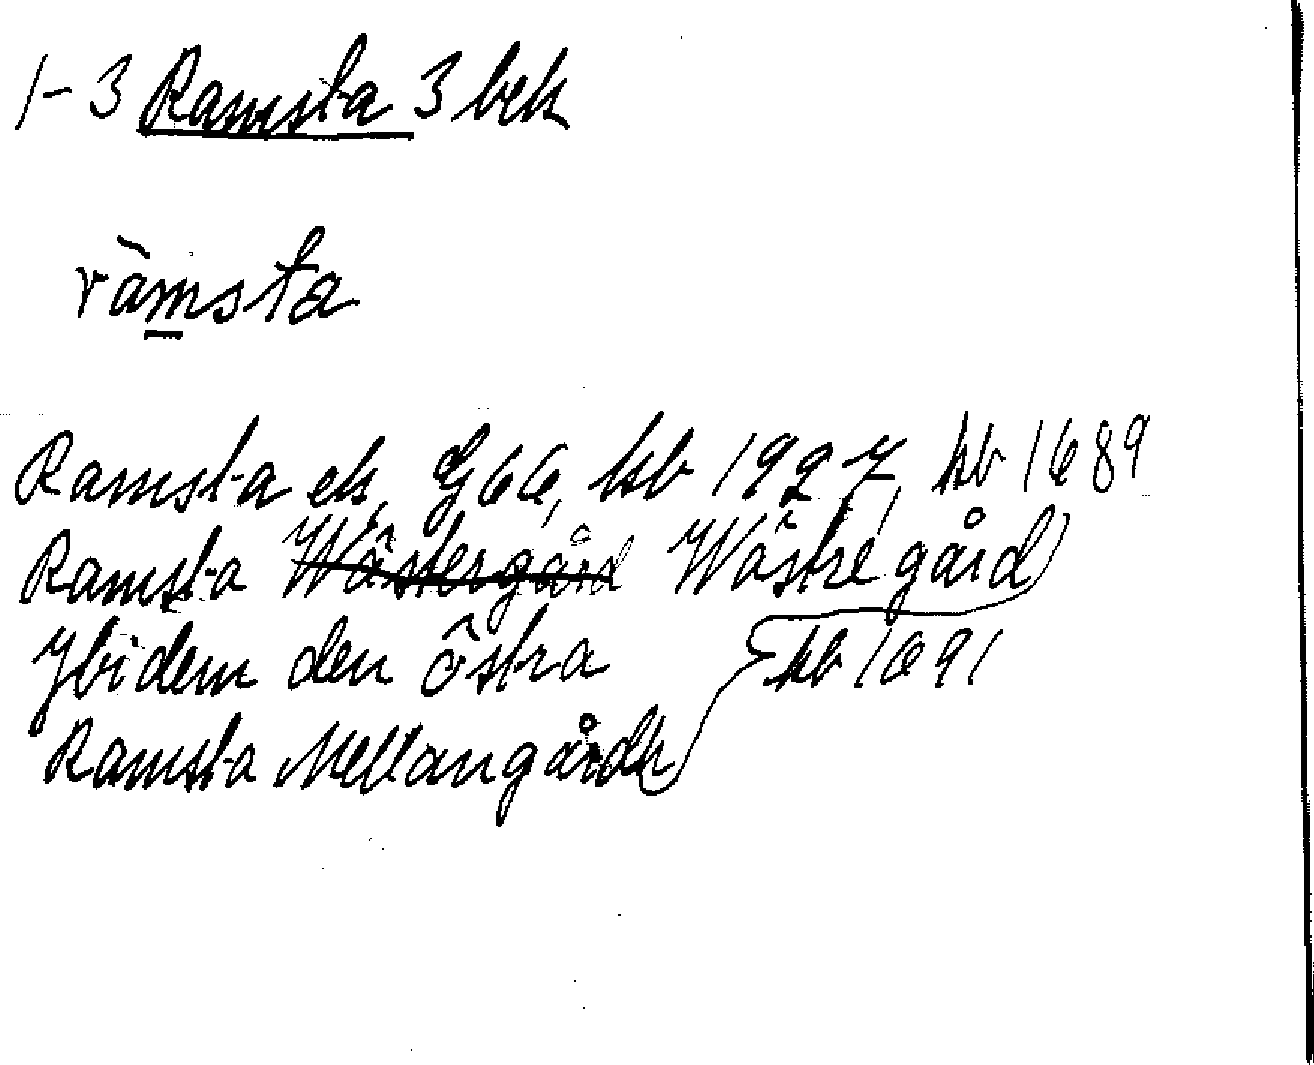 1-3 Ramsta 3 bek
ràmsta
Ramsta ek, G66, kb 1927, kb 1689
Ramsta Wästergård Wästre gård
Ybidem den östra kb 1691
Ramsta Mellangårdh